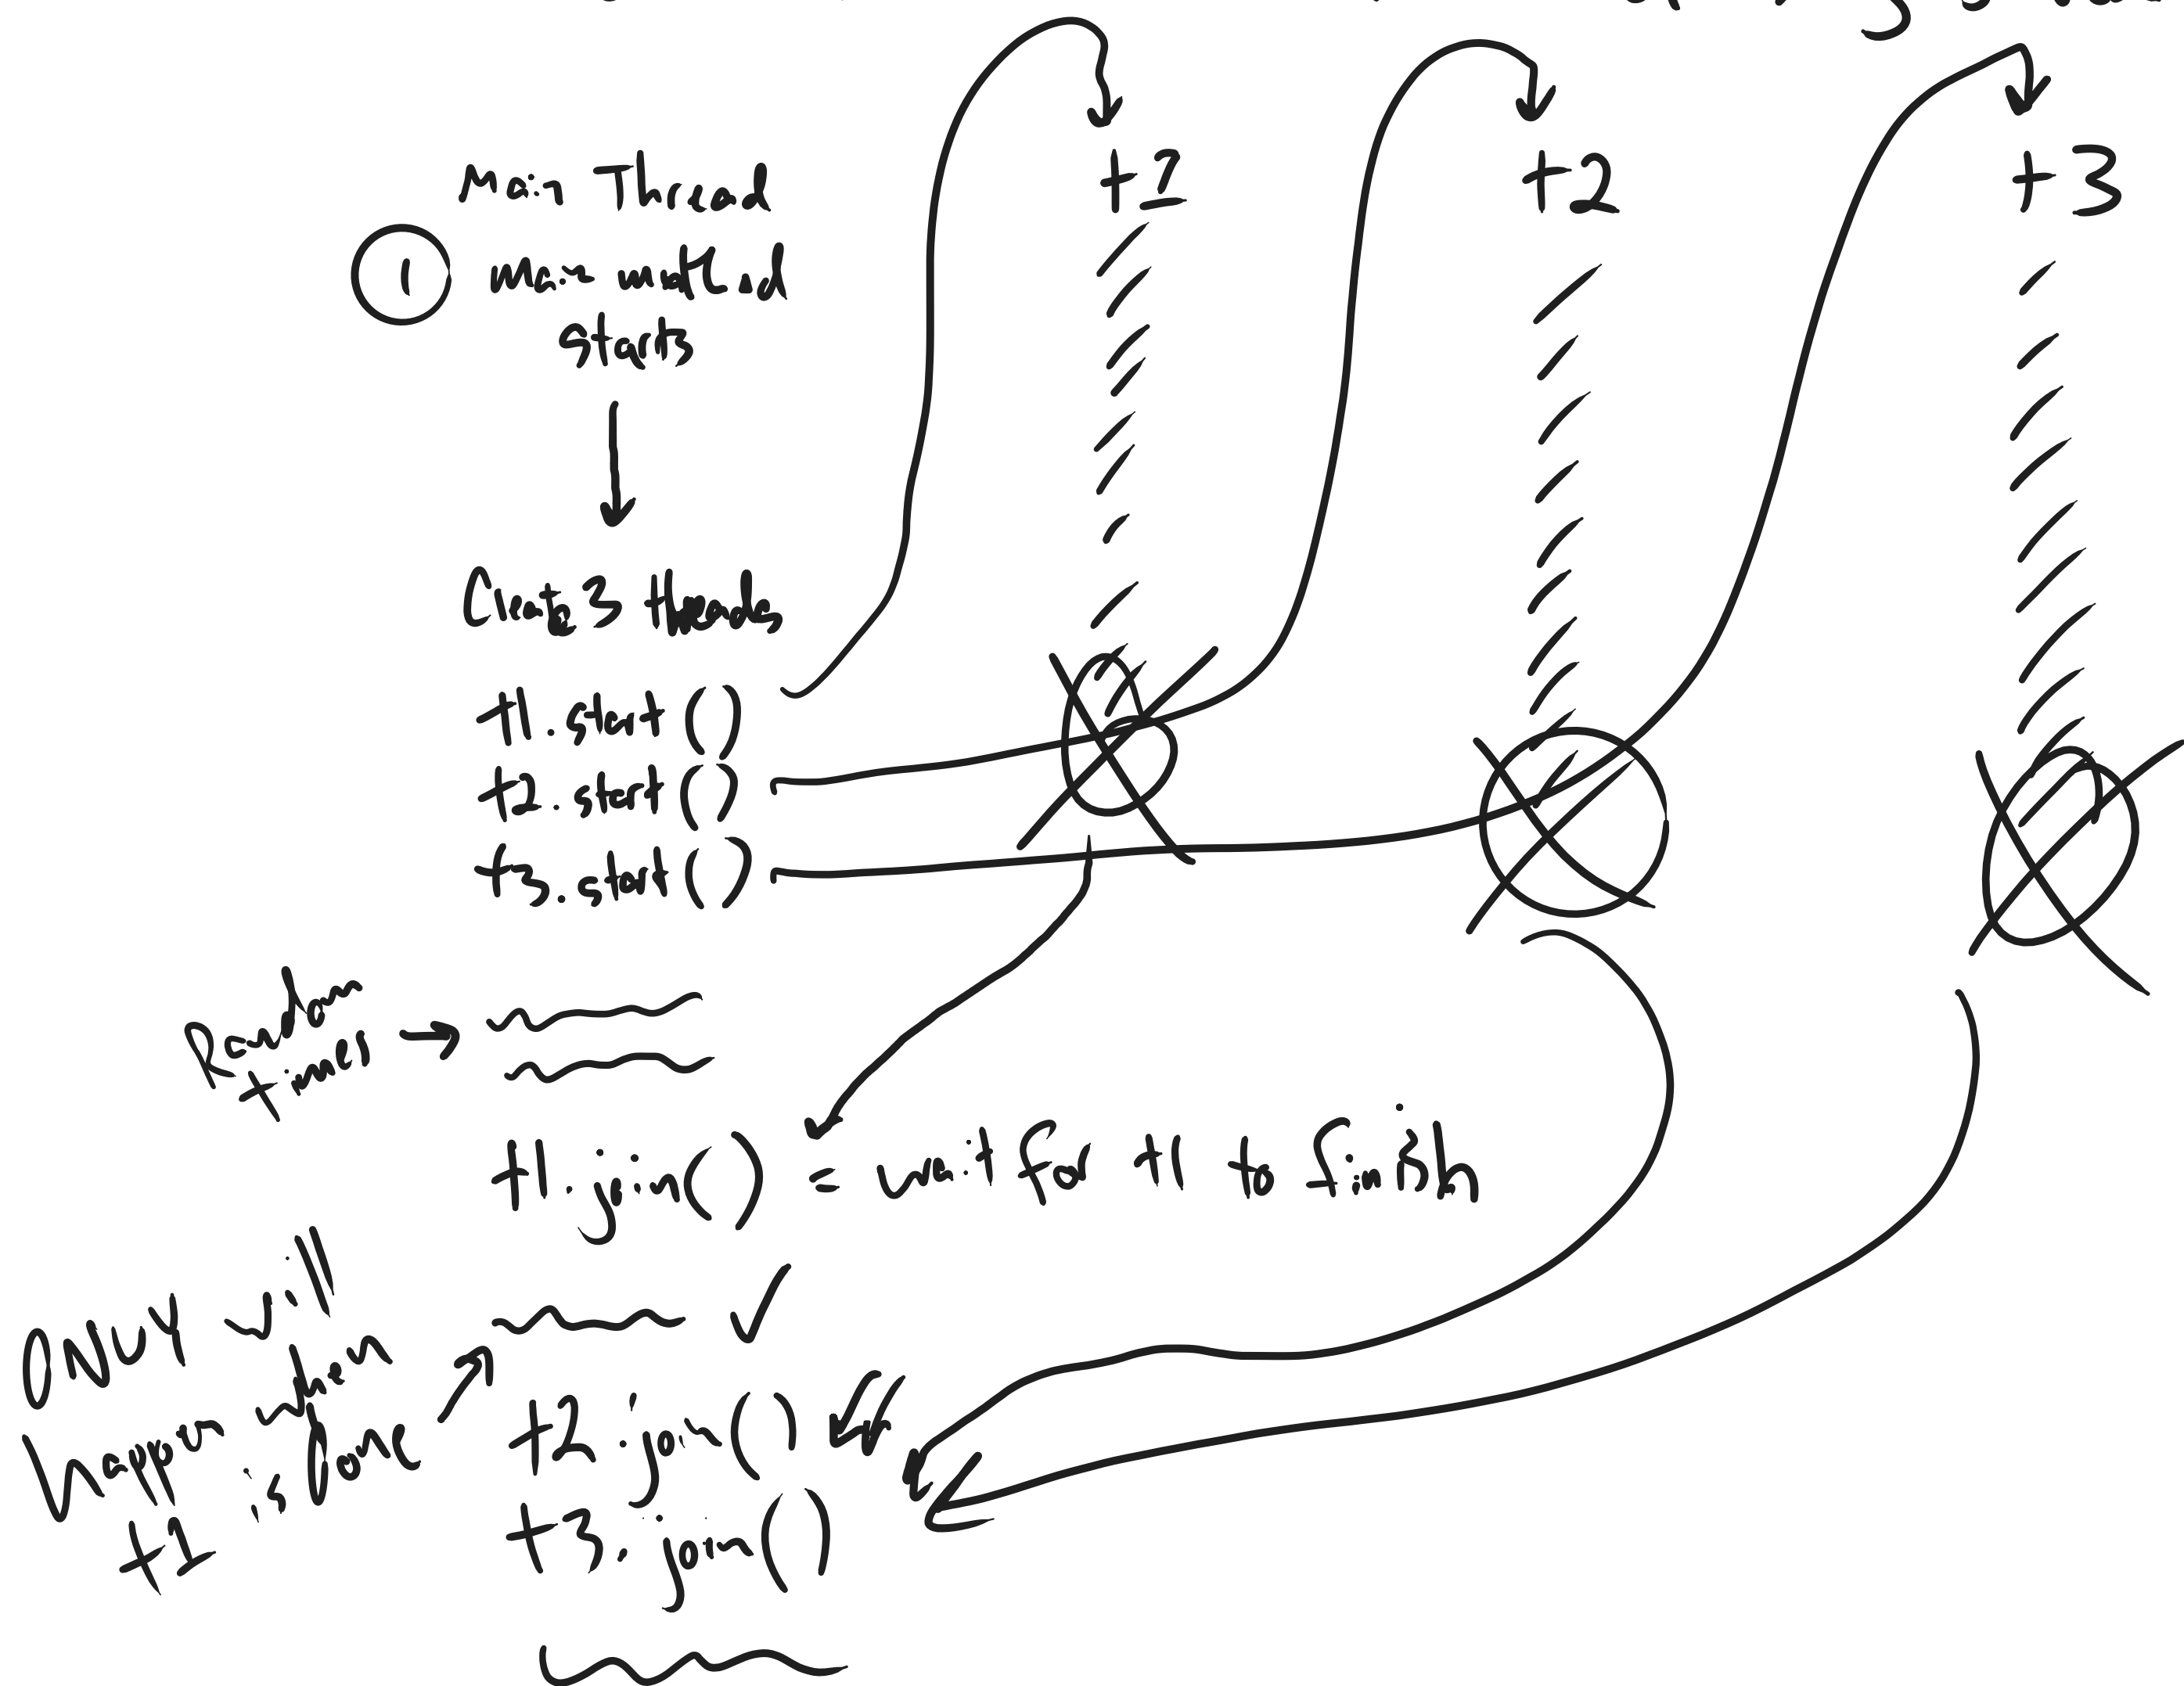 Main Thread
t2
t2
t3
1
main method
starts
Create 3 threads
t1.start()
t2.start()
t3.start()
Random
timing
t1.join() = wait for t1 to finish
ONLY will
happen when
t1 is done
t2.join()
t3.join()